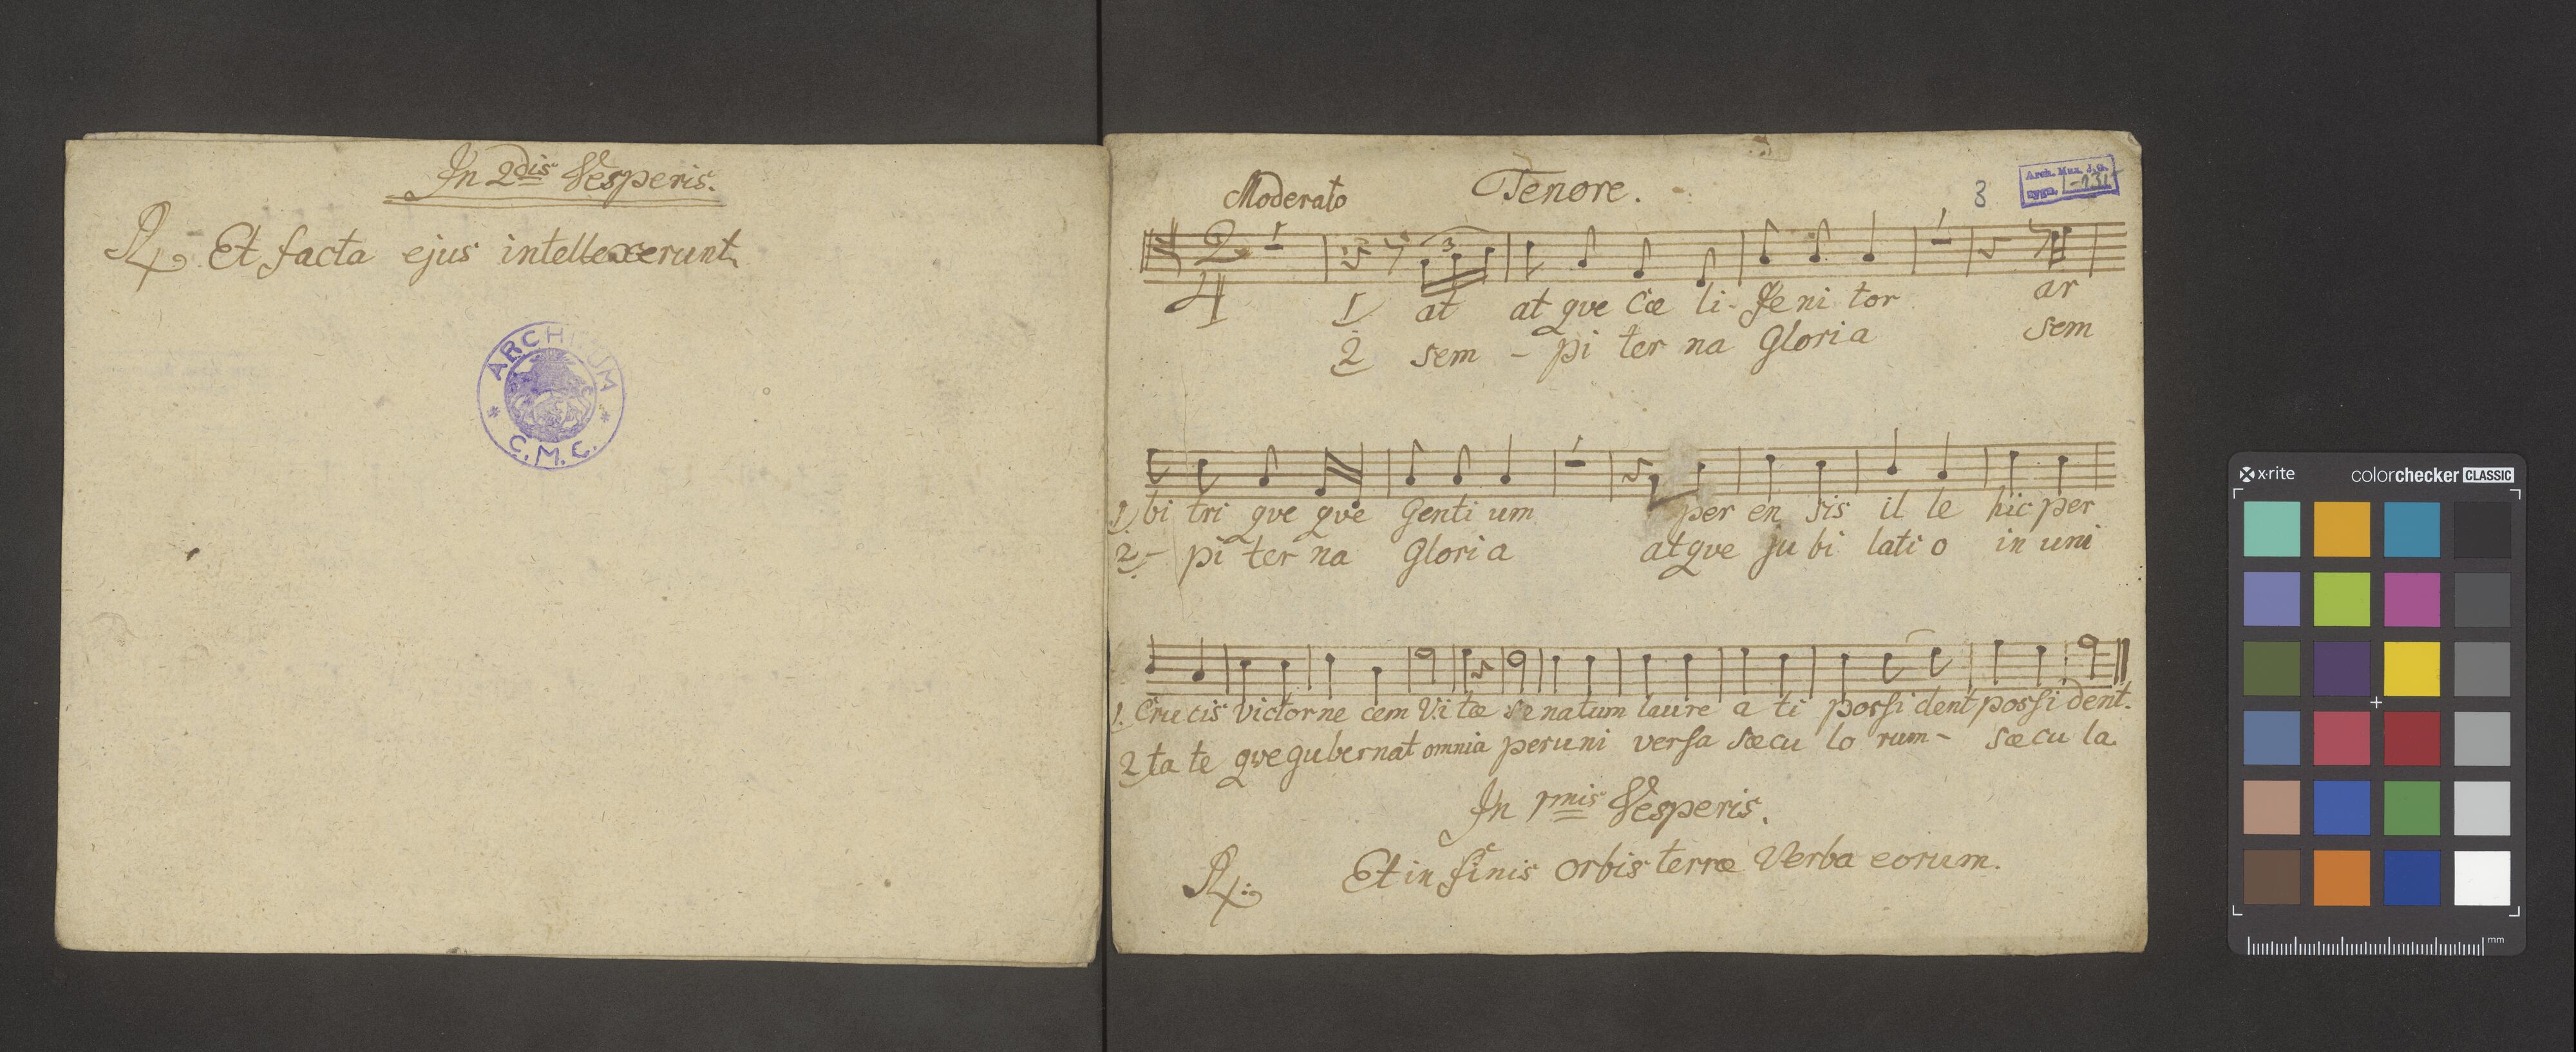 In 2dis Vesperis.
℟ Et facta ejus intellexerunt
ARCHIVUM
* C.M.C. *
Moderato Tenore. 3
Arch. Mus. J.G.
sygn.
2
4
3
1 at at qve Cæ li Ge ni tor ar
2 sem - pi ter na Gloria sem
1) bi tri qve qve Genti um per en sis il le hic per
2 - pi ter na Gloria atqve ju bi lati o in uni
1. Crucis victor ne cem Vi tæ se natum laure a ti possi dent possi dent.
2 ta te qve gubernat omnia per uni versa sæcu lo rum - sæcu la.
In 1mis Vesperis.
℟: Et in finis orbis terræ Verba eorum.
x·rite colorchecker CLASSIC
mm